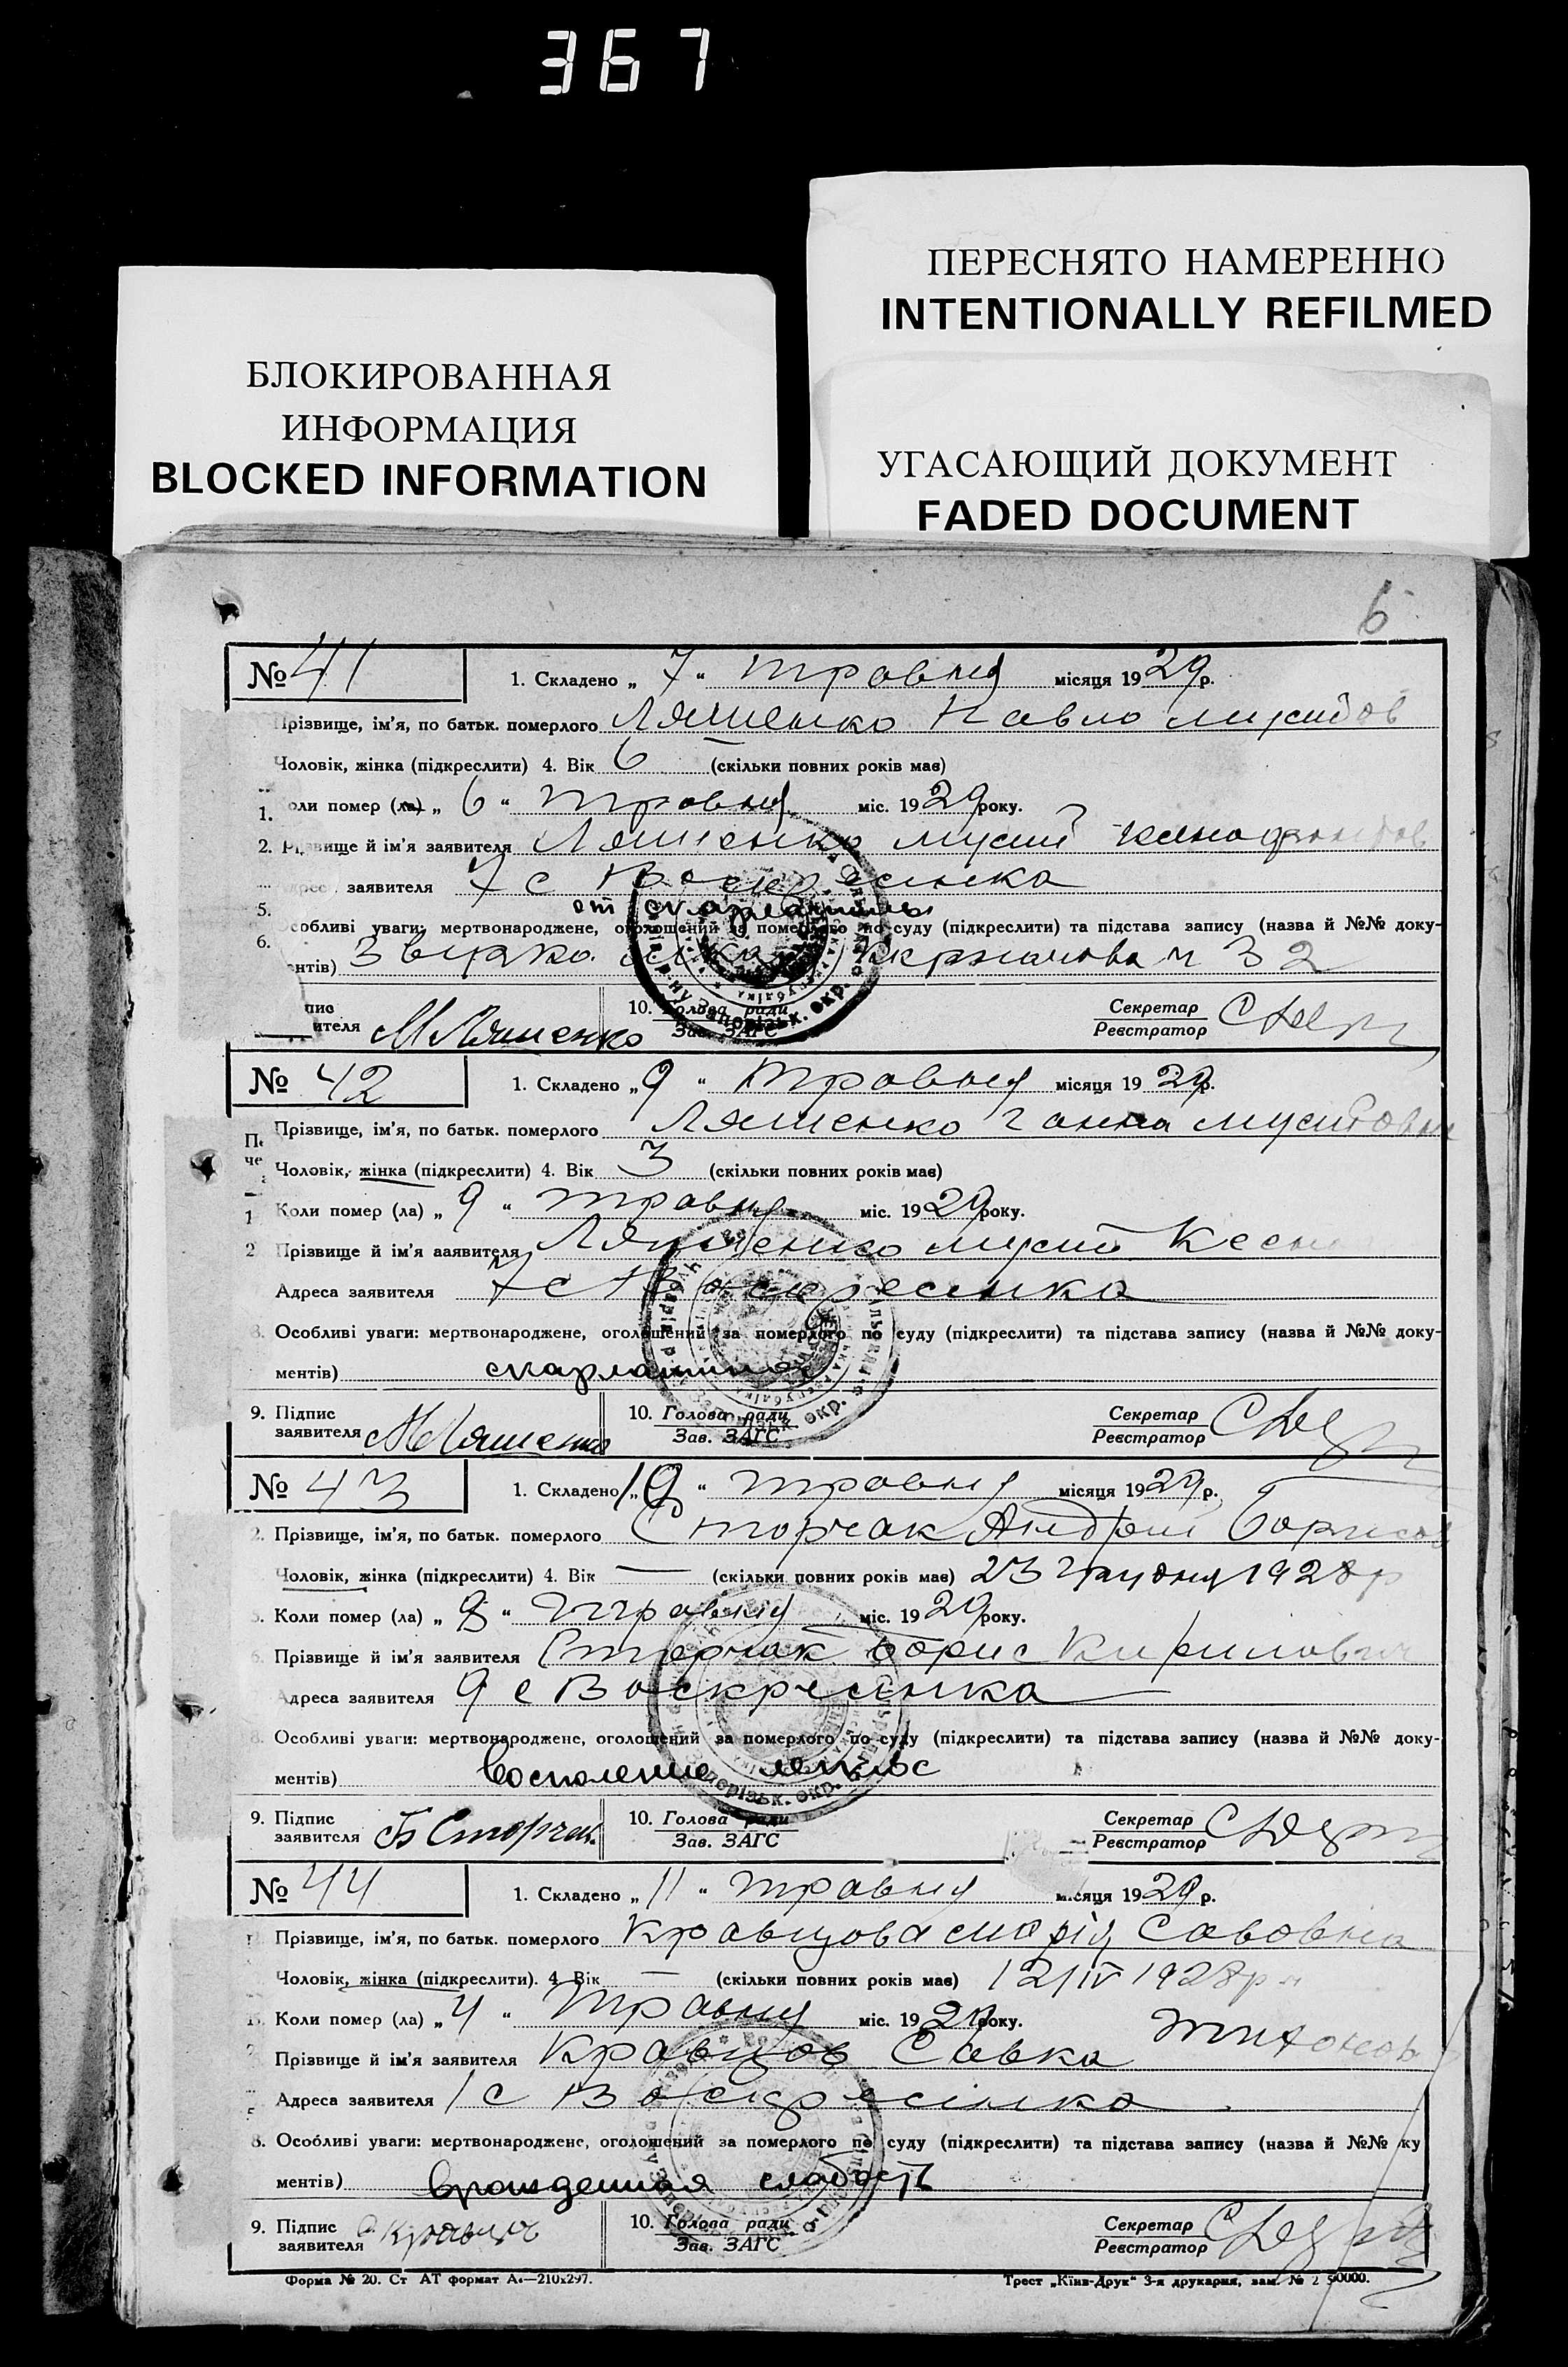 367
ПЕРЕСНЯТО НАМЕРЕННО
INTENTIONALLY REFILMED
БЛОКИРОВАННАЯ
ИНФОРМАЦИЯ
BLOCKED INFORMATION
УГАСАЮЩИЙ ДОКУМЕНТ
FADED DOCUMENT
6
№ 41 1. Складено „ 7 " травня місяця 1929 р.
Прізвище, ім'я, по батьк. померлого Ляшенко Павло Мусійов
Чоловік, жінка (підкреслити) 4. Вік 6 (скільки повних років має)
1. оли помер (ла) „ 6 " травня міс. 1929 року.
2. Прізвище й ім'я заявителя Ляшенко Мусий
заявителя 7 с Воскресенка
от скарлатины
5. собливі уваги: мертвонароджене, оголошений за померлого по суду (підкреслити) та підстава запису (назва й №№ доку-
6. нтів) ч 32
пис
ителя МЛяшенко 10. Голова ради Зав. ЗАГС Секретар Реєстратор
№ 42 1. Складено „ 9 " травня місяця 1929 р.
Прізвище, ім'я, по батьк. померлого Ляшенко Ганна Мусійовна
Чоловік, жінка (підкреслити) 4. Вік 3 (скільки повних років має)
Коли помер (ла) „ 9 " травня міс. 1929 року.
2 Прізвище й ім'я заявителя Ляшенко Мусий
Адреса заявителя 7 с Воскресенка
8. Особливі уваги: мертвонароджене, оголошений за померлого по суду (підкреслити) та підстава запису (назва й №№ доку-
ментів) скарлатина
9. Підпис заявителя МЛяшенко 10. Голова ради Зав. ЗАГС Секретар Реєстратор
№ 43 1. Складено „ 9 " травня місяця 1929 р.
2. Прізвище, ім'я, по батьк. померлого Сторчак Андрій Борисов
Чоловік, жінка (підкреслити) 4. Вік — (скільки повних років має) 23 грудня 1928 р
5. Коли помер (ла) „ 8 " травня міс. 1929 року.
6. Прізвище й ім'я заявителя Сторчак Борис Кирилович
Адреса заявителя 9 с Воскресенка
8. Особливі уваги: мертвонароджене, оголошений за померлого по суду (підкреслити) та підстава запису (назва й №№ доку-
ментів) Воспаление легких
9. Підпис заявителя Б Сторчак 10. Голова ради Зав. ЗАГС Секретар Реєстратор
№ 44 1. Складено „ 11 " травня місяця 1929 р.
Прізвище, ім'я, по батьк. померлого Кравцова Марія Савовна
Чоловік, жінка (підкреслити). 4. Вік — (скільки повних років має) 12/IV 1928 р
Коли помер (ла) „ 4 " травня міс. 1929 року.
Прізвище й ім'я заявителя Кравцов Савка Тихонов
Адреса заявителя 1 с Воскресенка
8. Особливі уваги: мертвонароджене, оголошений за померлого по суду (підкреслити) та підстава запису (назва й №№ ку
ментів) врожденная слабость
9. Підпис заявителя Кравцов 10. Голова ради Зав. ЗАГС Секретар Реєстратор
Форма № 20. Ст АТ формат А₄—210x297. Трест „Київ-Друк" 3-я друкарня, зам. №